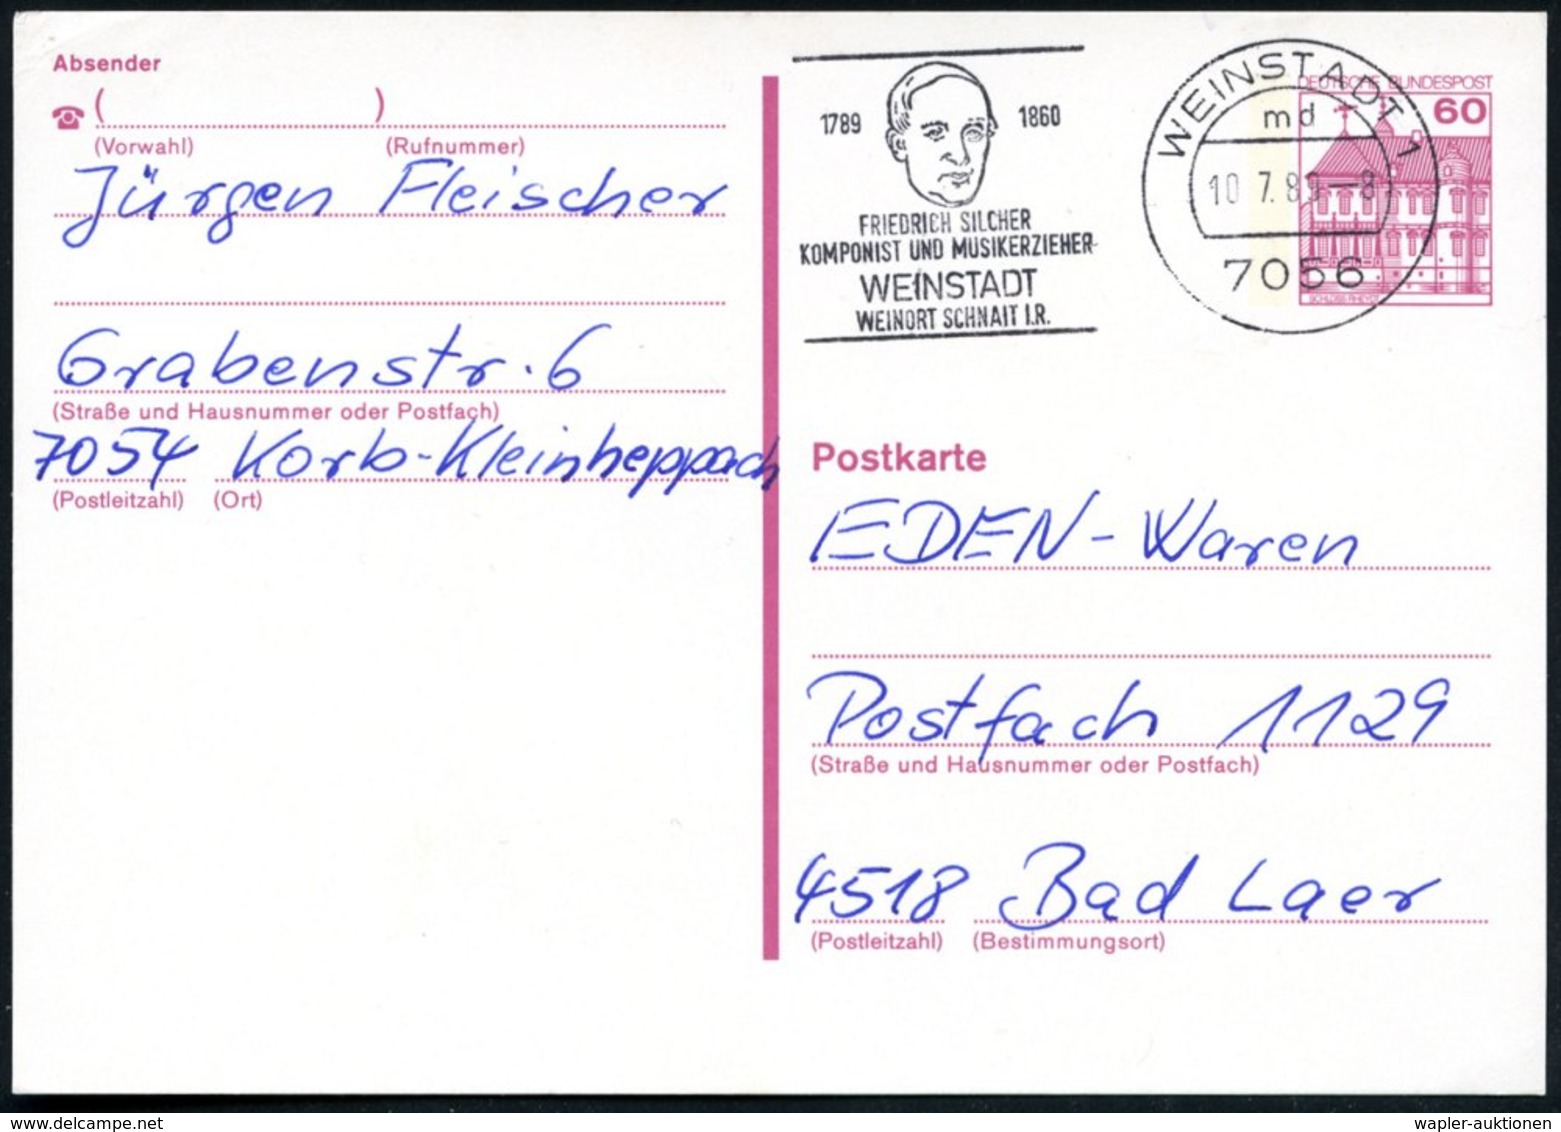 Absender
( )
(Vorwahl) (Rufnummer)
Jürgen Fleischer
Grabenstr. 6
(Straße und Hausnummer oder Postfach)
7054 Korb-Kleinheppach
(Postleitzahl) (Ort)
1789 1860
FRIEDRICH SILCHER
KOMPONIST UND MUSIKERZIEHER
WEINSTADT
WEINORT SCHNAIT I.R.
WEINSTADT 1
md
10 7.89-8
7056
DEUTSCHE BUNDESPOST
60
SCHLOSS RHEYDT
Postkarte
EDEN-Waren
Postfach 1129
(Straße und Hausnummer oder Postfach)
4518 Bad Laer
(Postleitzahl) (Bestimmungsort)
wapler-auktionen